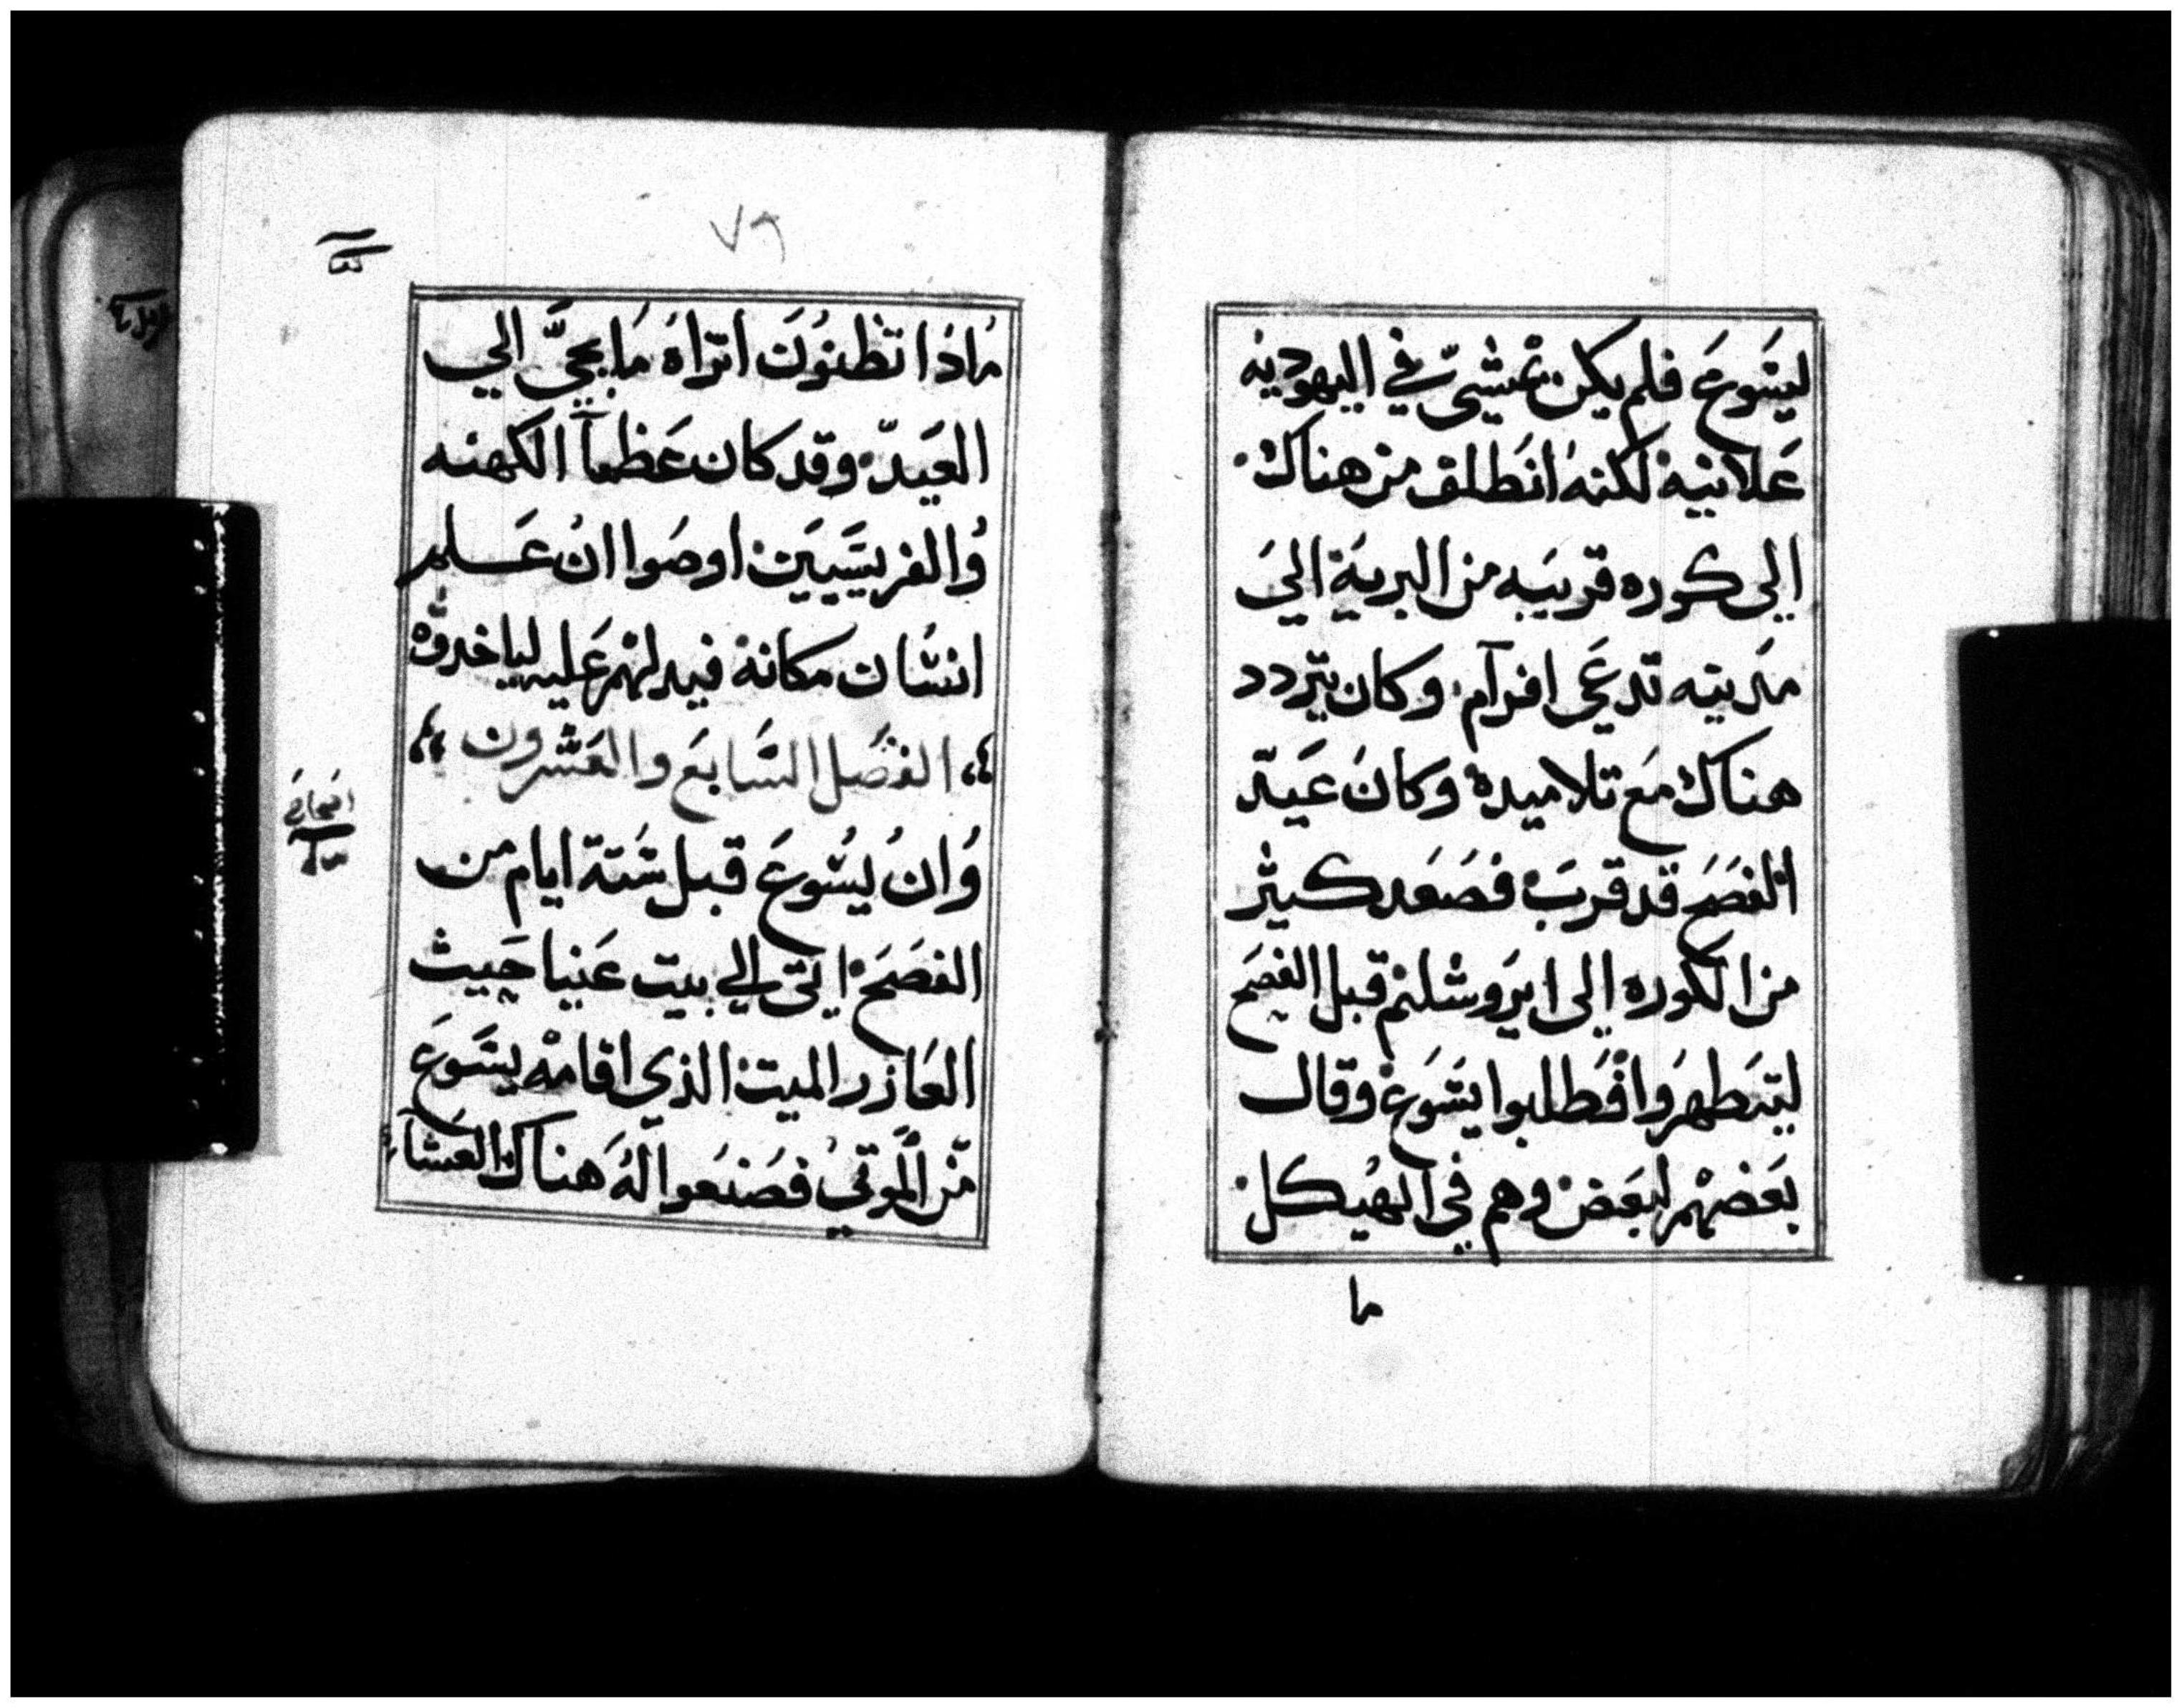 ليسوع فلم يكن يمشي في اليهوديه
علانية لكنه انطلق من هناك
إلى كوره قريبه من البرية الى
مدينه تدعى افرآم وكان يتردد
هناك مع تلاميده وكان عيد
الفصح قد قرب فصعد كثير
من الكوره إلى ايروشليم قبل الفصح
ليتطهروا فطلبوا يسوع وقال
بعضهم لبعض وهم في الهيكل
ما
٧٩
ماذا تظنون اتراه ما يجي الي
العيد وقد كان عظمآ الكهنه
والفريسيين اوصوا ان علم
انسان مكانه فيدلهم عليه لياخدوه
الفصل السابع والعشرون
وان يسوع قبل ستة ايام من
الفصح اتى الي بيت عنيا حيث
العازر الميت الذي اقامه يسوع
من الموتي فصنعوا له هناك العشآء